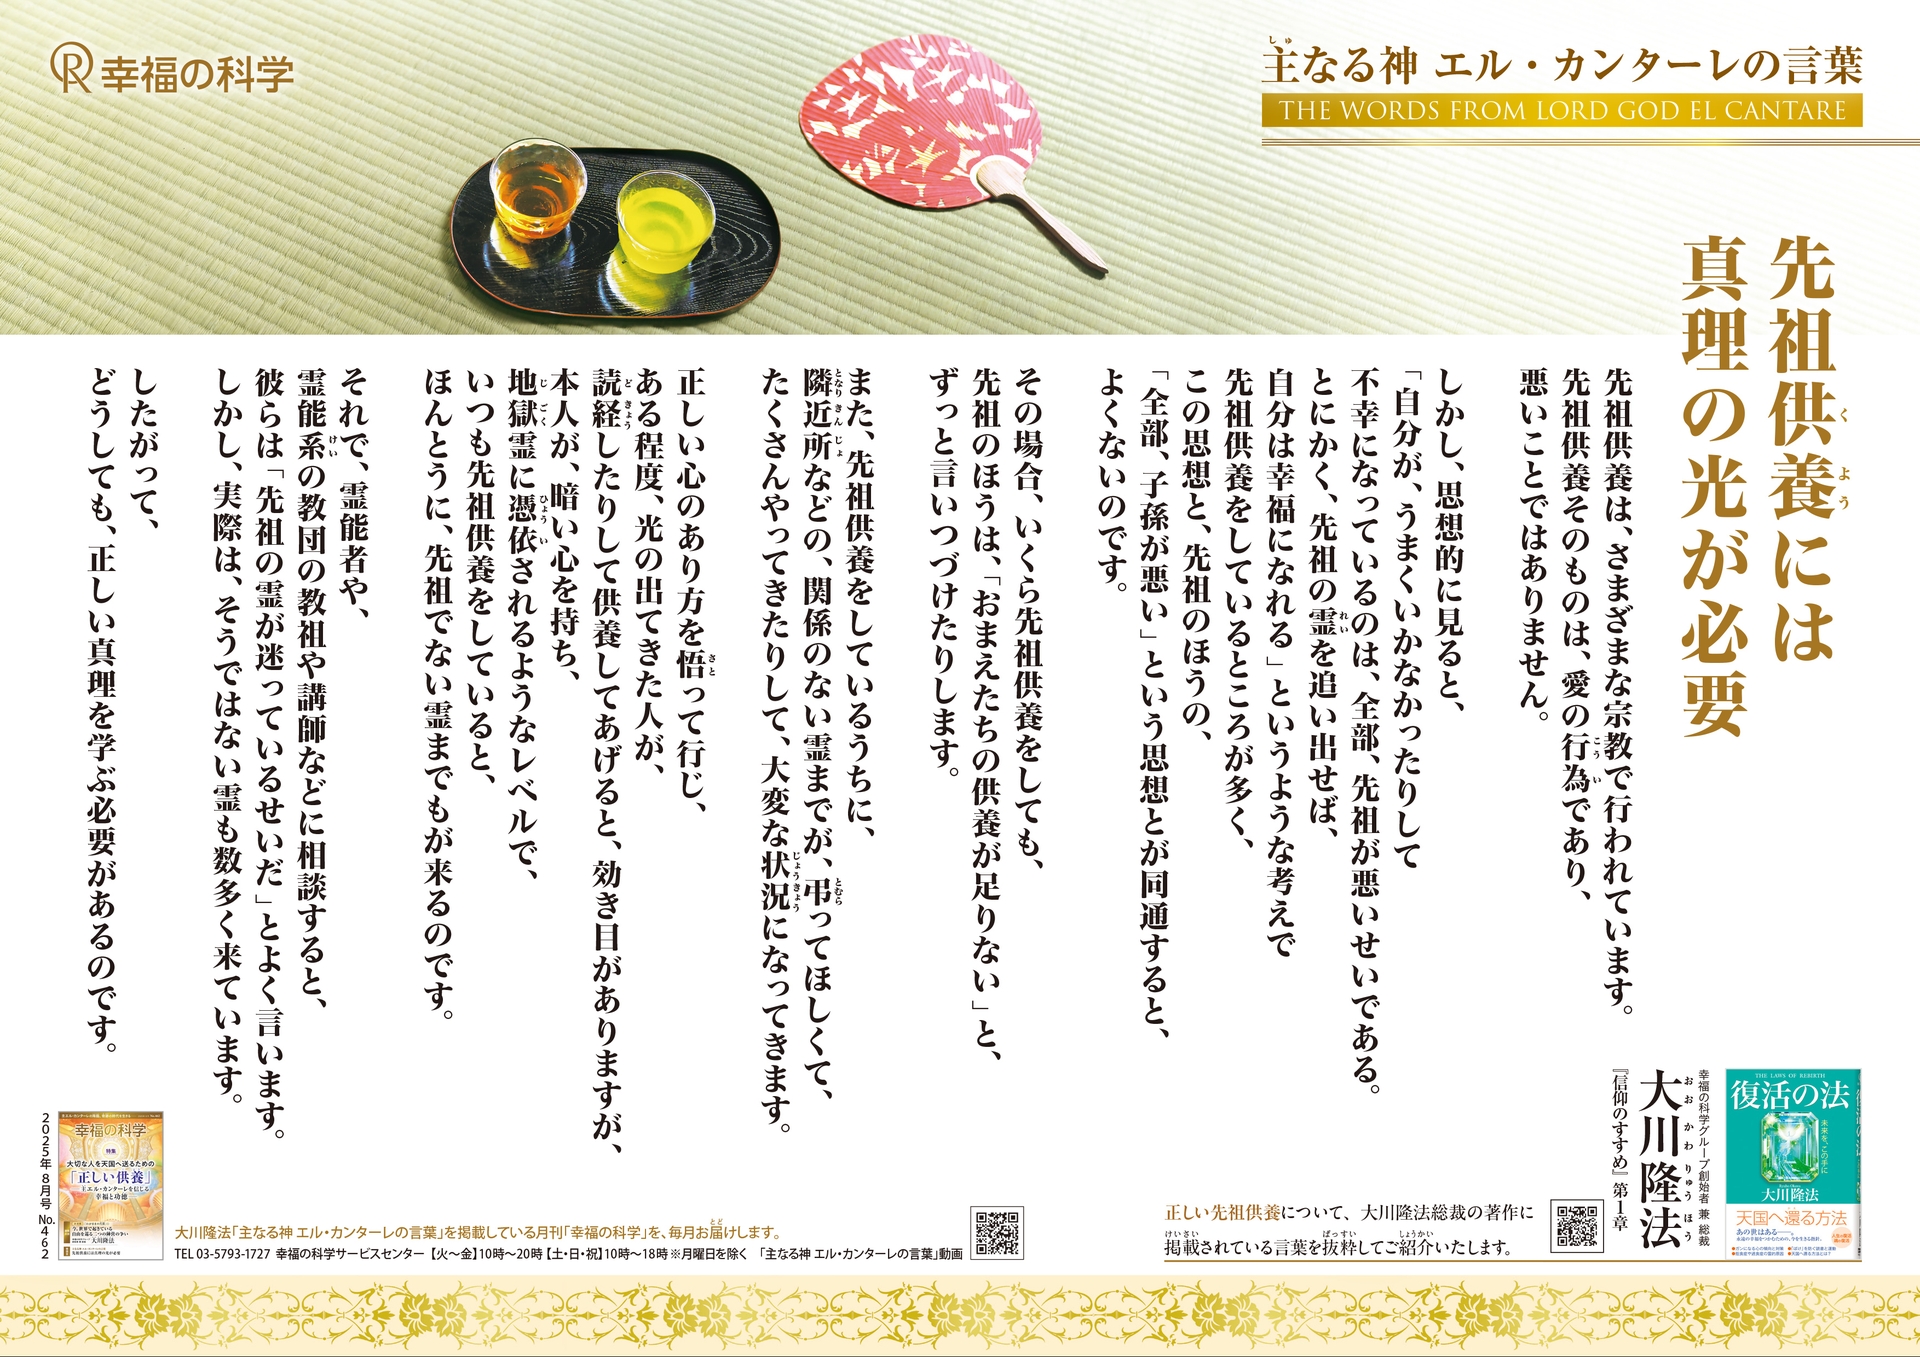 幸福の科学
主なる神 エル・カンターレの言葉
THE WORDS FROM LORD GOD EL CANTARE
先祖供養には
真理の光が必要
先祖供養は、さまざまな宗教で行われています。
先祖供養そのものは、愛の行為であり、
悪いことではありません。
しかし、思想的に見ると、
「自分が、うまくいかなかったりして
不幸になっているのは、全部、先祖が悪いせいである。
とにかく、先祖の霊を追い出せば、
自分は幸福になれる」というような考えで
先祖供養をしているところが多く、
この思想と、先祖のほうの、
「全部、子孫が悪い」という思想とが同通すると、
よくないのです。
その場合、いくら先祖供養をしても、
先祖のほうは、「おまえたちの供養が足りない」と、
ずっと言いつづけたりします。
また、先祖供養をしているうちに、
隣近所などの、関係のない霊までが、弔ってほしくて、
たくさんやってきたりして、大変な状況になってきます。
正しい心のあり方を悟って行じ、
ある程度、光の出てきた人が、
読経したりして供養してあげると、効き目がありますが、
本人が、暗い心を持ち、
地獄霊に憑依されるようなレベルで、
いつも先祖供養をしていると、
ほんとうに、先祖でない霊までもが来るのです。
それで、霊能者や、
霊能系の教団の教祖や講師などに相談すると、
彼らは「先祖の霊が迷っているせいだ」とよく言います。
しかし、実際は、そうではない霊も数多く来ています。
したがって、
どうしても、正しい真理を学ぶ必要があるのです。
幸福の科学グループ創始者 兼 総裁
大川隆法
『信仰のすすめ』第1章
THE LAWS OF REBIRTH
復活の法
未来を、この手に
大川隆法
天国へ還る方法
あの世はある――。
正しい先祖供養について、大川隆法総裁の著作に
掲載されている言葉を抜粋してご紹介いたします。
大川隆法「主なる神 エル・カンターレの言葉」を掲載している月刊「幸福の科学」を、毎月お届けします。
TEL 03-5793-1727 幸福の科学サービスセンター【火～金】10時～20時【土・日・祝】10時～18時 ※月曜日を除く 「主なる神 エル・カンターレの言葉」動画
幸福の科学
特集
大切な人を天国へ送るための
「正しい供養」
主エル・カンターレを信じる
幸福と功徳
2025年 8月号 No.462